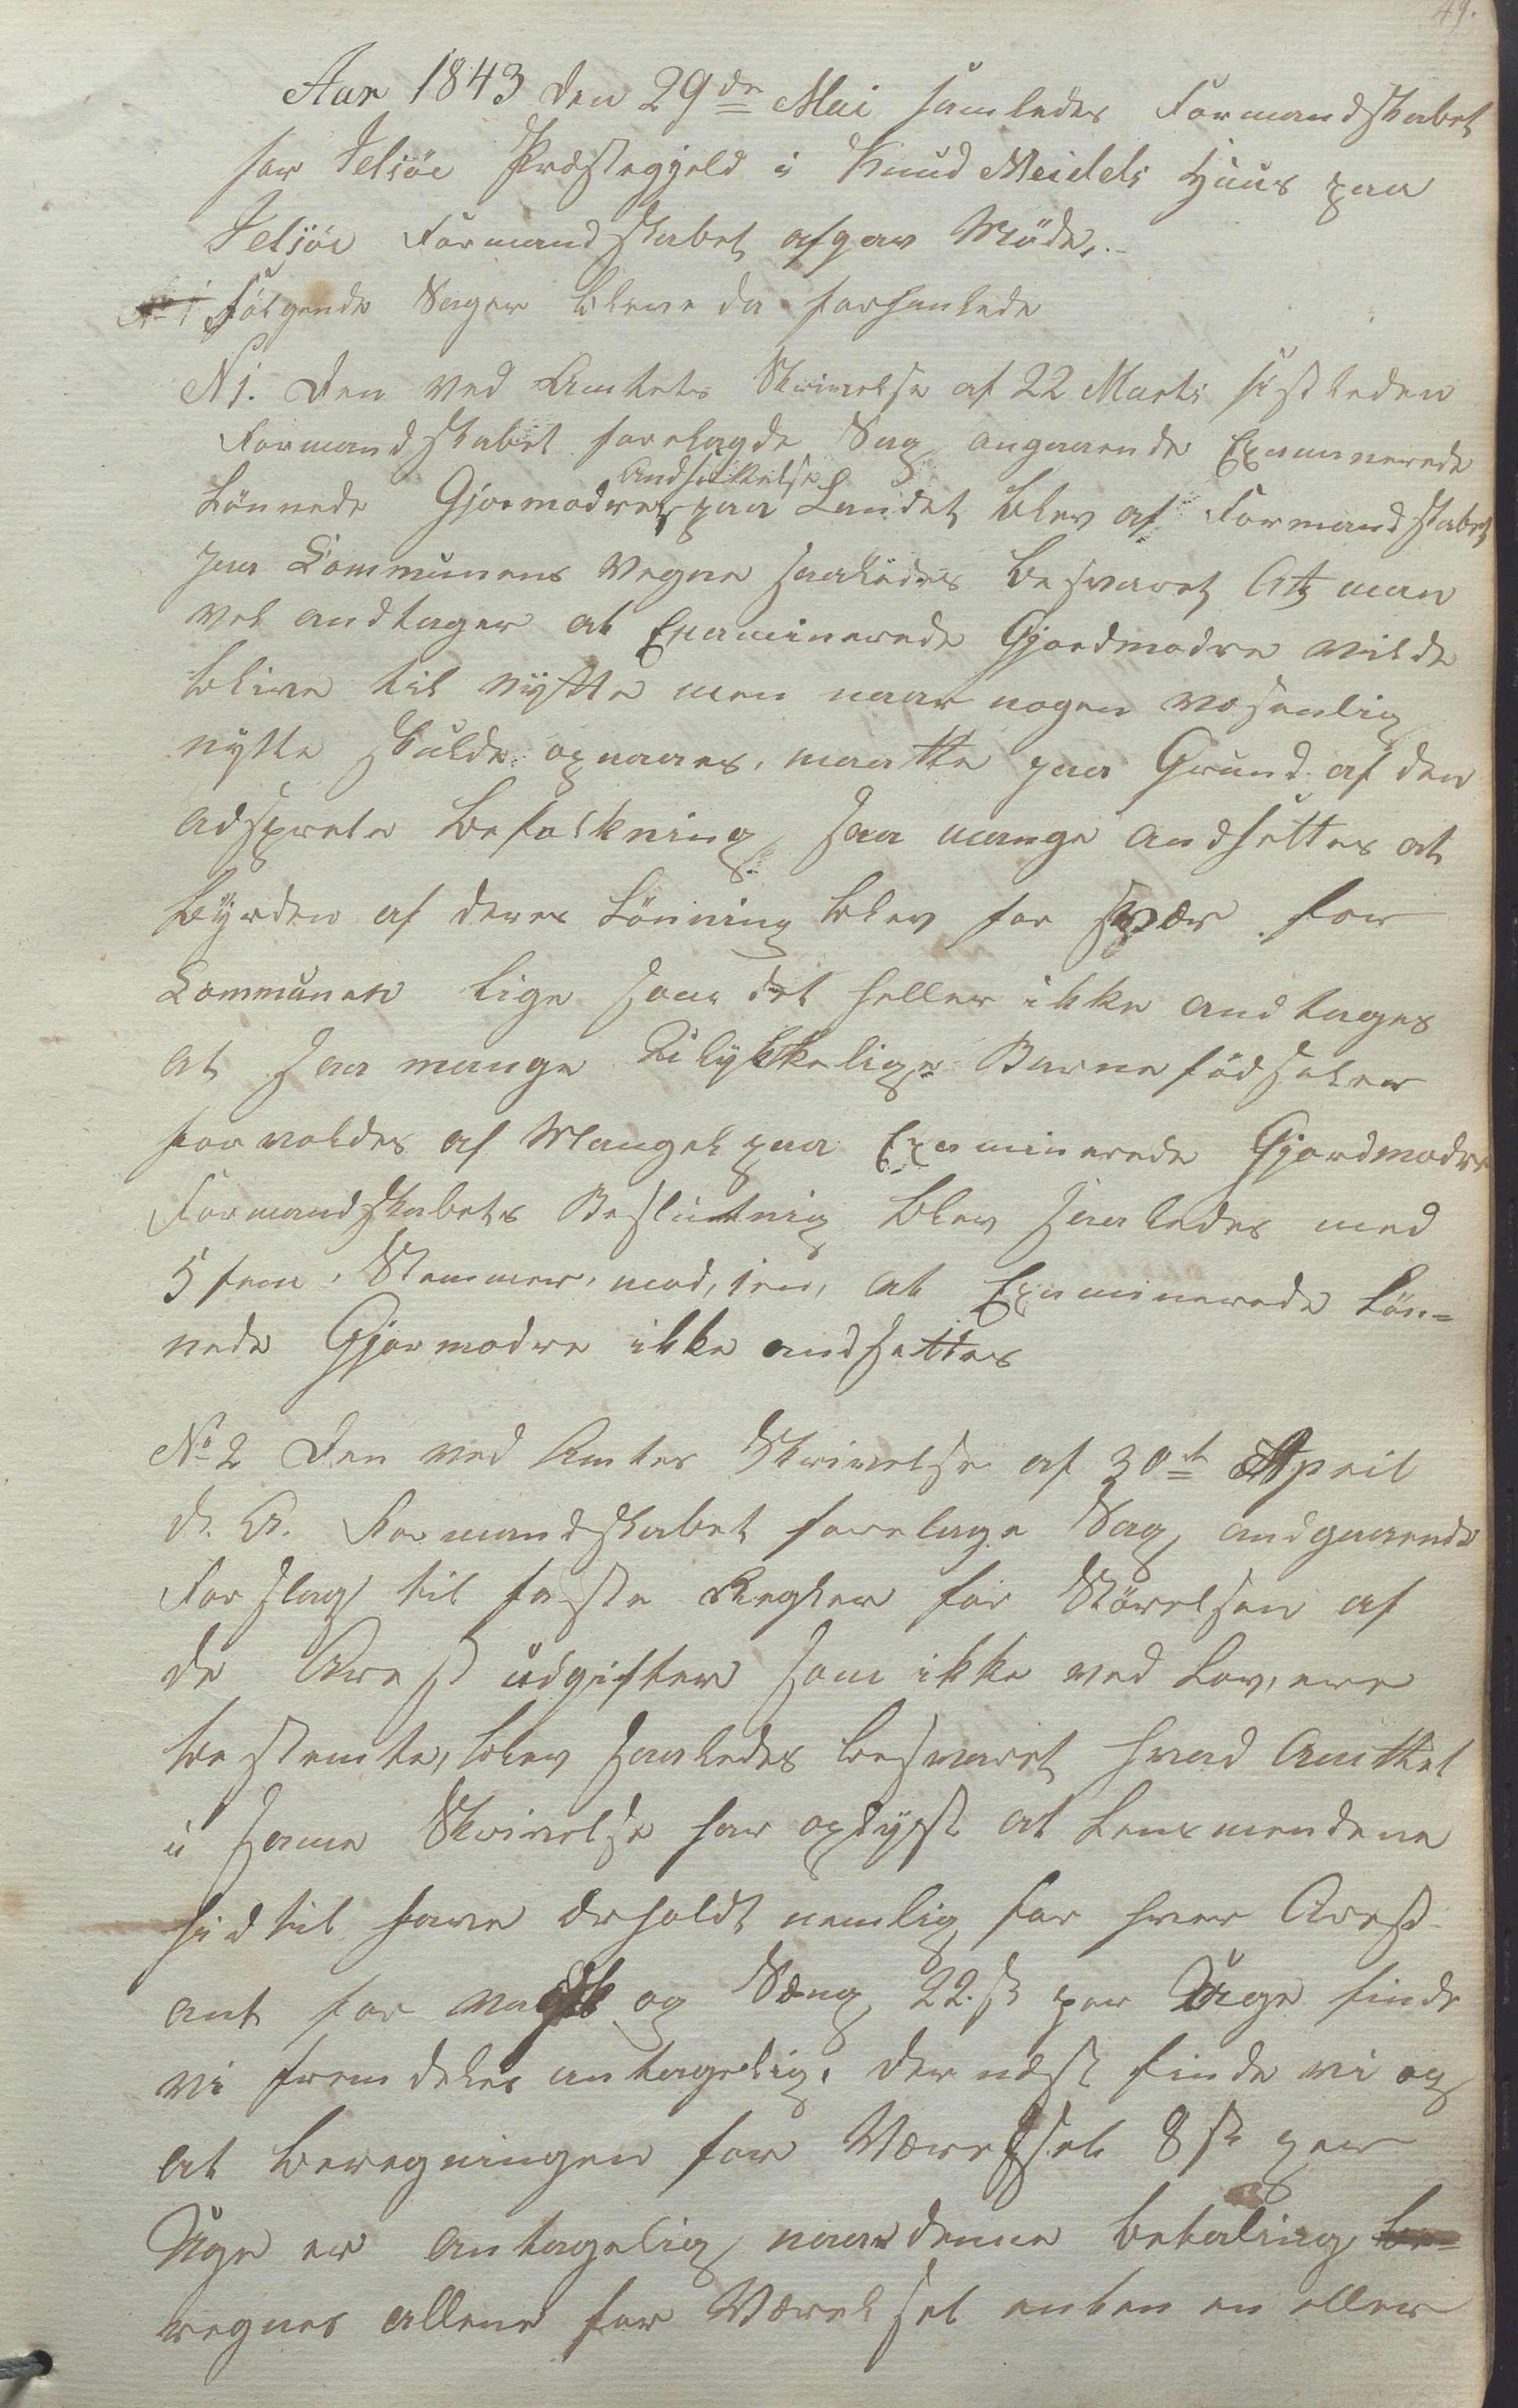 49.
Aar 1843 den 29de Mai samledes Formandskabet
for Jelsöe Præstegjeld i Knud Meidels Huus paa
Jelsöe Formandskabet afgav Møde,.-
Følgende Sager bleve da forhanlede
N 1. Den ved Amtets Skrivelse af 22 Marts sistleden
Formandskabet forelagde Sag angaaende Examinerede
Andsettelse
Lönnede Gjormodres paa Landet blev af Formandskabet
paa Communens Vegne saaledes besvaret At man
vel andtager at Examinerede Gjordmodre vilde
blive til Nytte men naar nogen væsenlig
nytte skulde opnaaes, maatte paa Grund af den
adsprete befolkning saa mange andsettes at
byrden af deres Lönning blev for svær for
Communen lige som det heller ikke andtages
at saa mange Ulykkelige Barnefödseler
forvoldes af Mangel paa Examinerede Gjordmodre
Formandskabets Beslutnig blev saaledes med
5 fem, Stemmer, mod, 1 en, at Examinerede Lön-
nede Gjormodre ikke andsettes
No 2 Den ved Amtes Skrivelse af 30te April
d. A. Formandskabet forelage Sag, andgaaende
Forslag til faste Regler for Störelsen af
de Arest udgifter som ikke ved Lov, ere
bestemte, blev saaledes besvaret hvad Amttet
i same Skrivelse har oplyst at Lensmendene
hidtil have erholdt nemlig for hver Arest-
ant for vagt og Seng 22 s per Uge finde
vi fremdeles antagelig, dernæst finde vi og
at beregningen for Værelset 8 s per
Uge er antagelig naar denne betaling be-
regnes allene for Værelset enten en eller